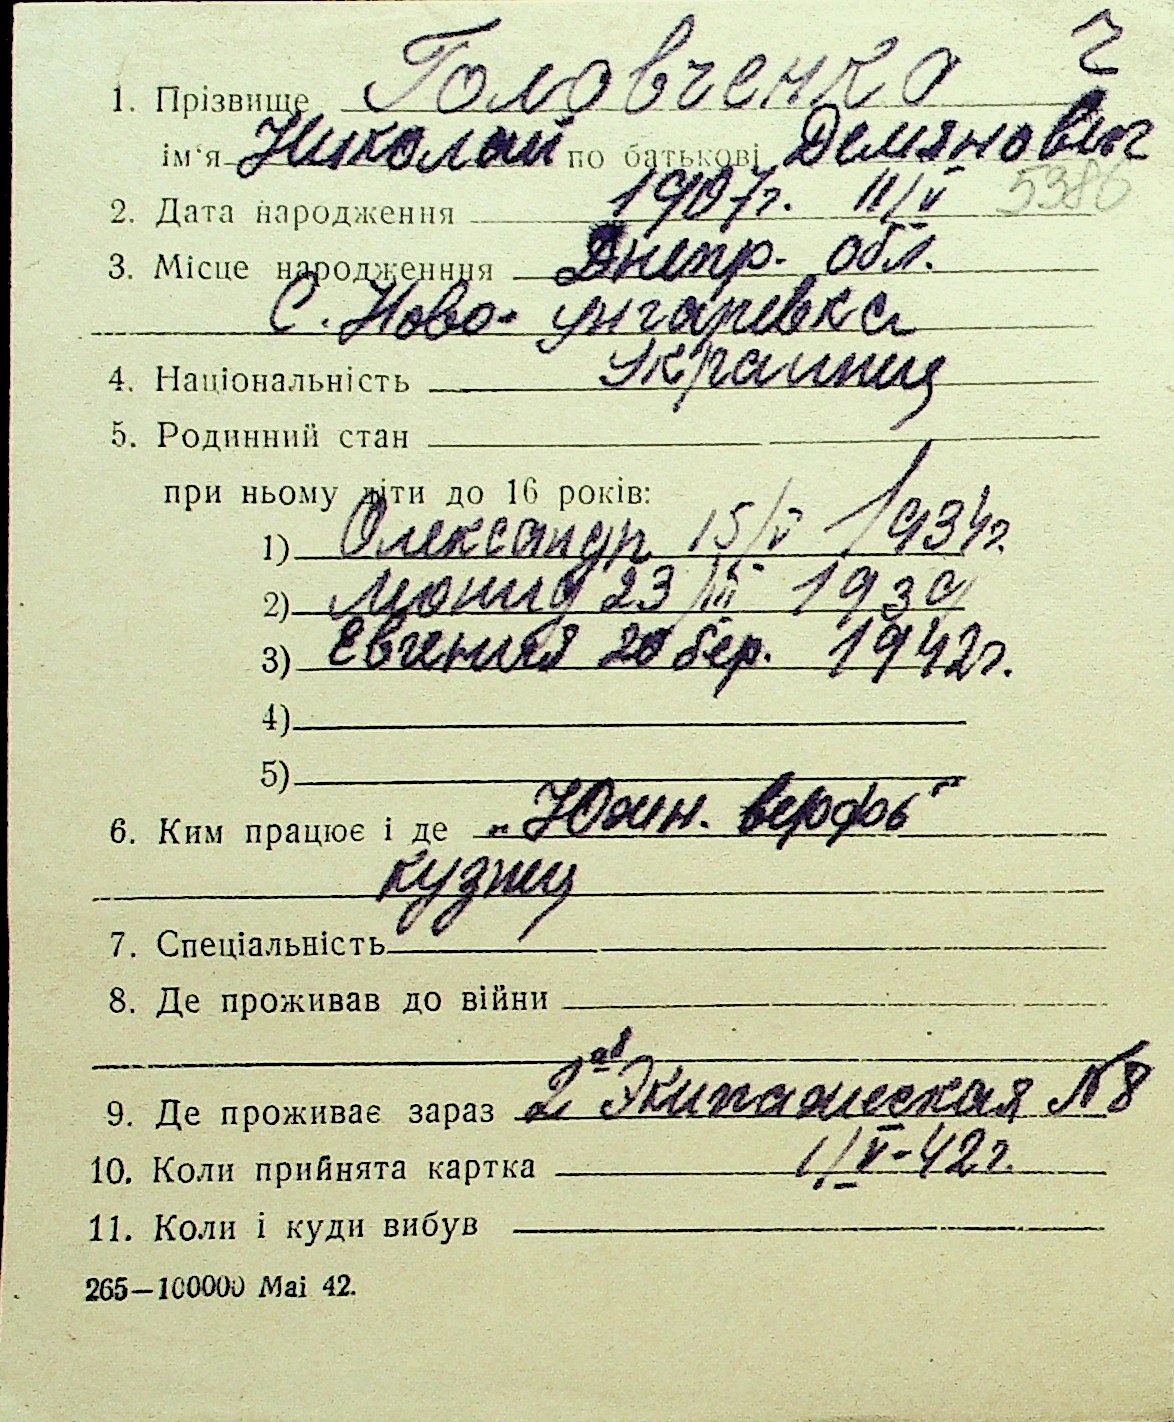 1. Прізвище Головченко
ім'я Николай по батькові Демянович
5386
2. Дата народження 1907г. 11/V
3. Місце народженння Днепр. обл.
С. Ново-унгаревка
4. Національність украинец
5. Родинний стан
при ньому діти до 16 років:
1) Олександр 15/V 1934г.
2) Леонид 23/III 1939
3) Евгения 20 бер. 1942г.
4)
5)
6. Ким працює і де „Южн. верфь"
кузнец
7. Спеціальність
8. Де проживав до війни
9. Де проживає зараз 2ая Экипажеская №8
10. Коли прийнята картка 1/V-42г.
11. Коли і куди вибув
265—100000 Mai 42.